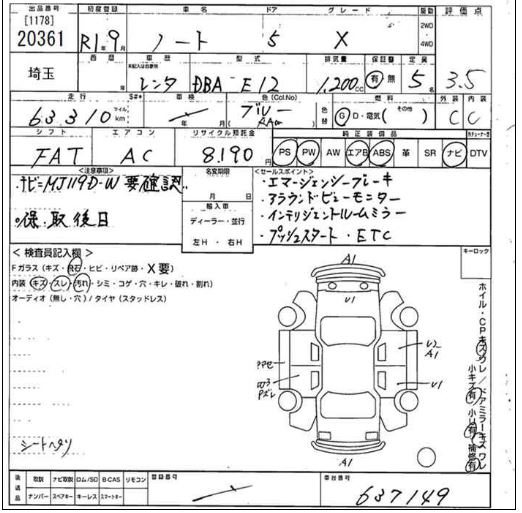 出品番号 初度登録 車名 ドア グレード 駆動 評価点
[1178]
20361 R1年9月 ノート 5 X 2WD・4WD
埼玉 西暦 車歴 型式 排気量 保証書 定員
レンタ DBA-E12 1,200cc 有・無 5 3.5
走行 S# 車検 色(Col.No) 色替 燃料 外装 内装
63,310 マイル km 年 月 ブルー RAM G・D・電気( )その他 C C
シフト エアコン リサイクル預託金 純正装備品
FAT AC 8,190円 PS PW AW エアB ABS 革 SR ナビ DTV
<注意事項> 名変期限 <セールスポイント>
ナビ=MJ119D-W 要確認 月 日 ・エマージェンシーブレーキ
・保、取後日 輸入車 ・アラウンドビューモニター
ディーラー・並行 ・インテリジェントルームミラー
左H ・ 右H ・プッシュスタート ・ETC
<検査員記入欄> キーロック
Fガラス(キズ・飛石・ヒビ・リペア跡・X要)
内装(キズ・スレ・汚れ・シミ・コゲ・穴・キレ・破れ・割れ)
オーディオ(無し・穴)/タイヤ(スタッドレス)
A1
U1
U2
A1
U1
A1
ホイル・CPキズワレ/ドアミラーキズワレ
小キズ有・小U有・補修有
シートヘタリ
後送品 取説 ナビ取説 ロム/SD B-CAS リモコン 登録番号 車台番号
ナンバー スペアキー キーレス スマートキー 637149